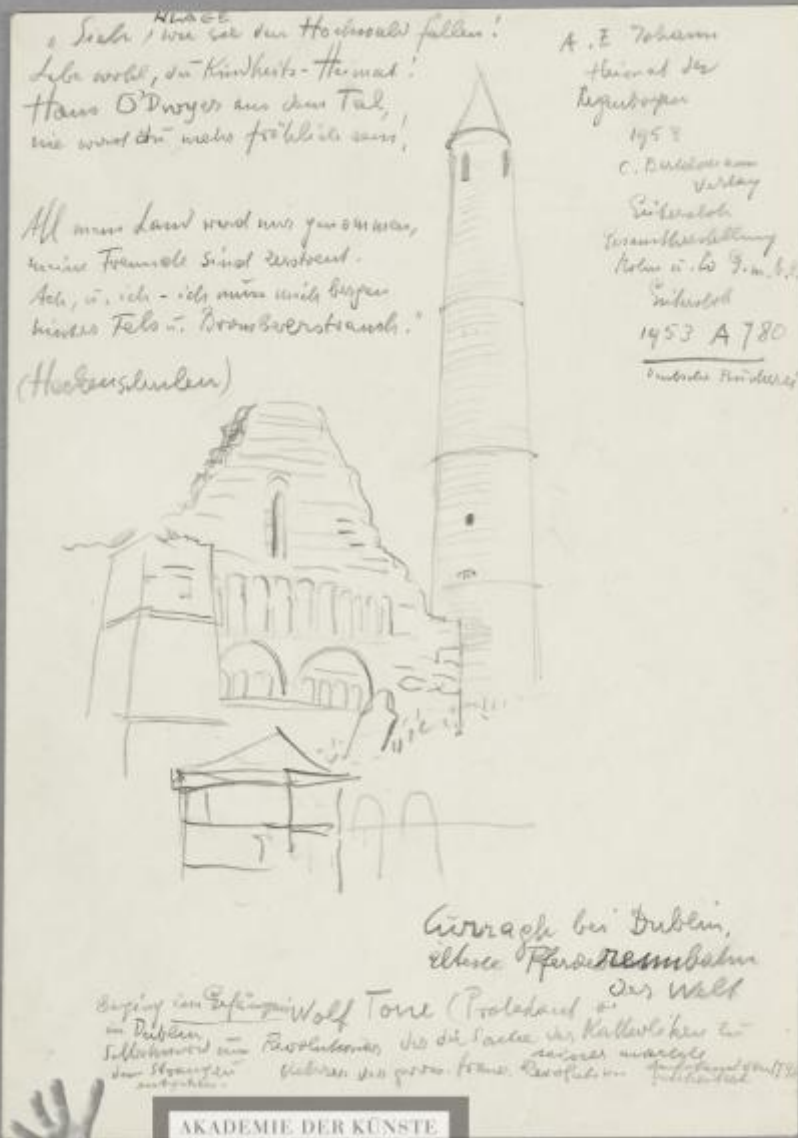 KLAGE
„Sieh, wie sie den Hochwald fällen!
Lebe wohl, du Kindheits-Heimat!
Hans O'Dwyer aus dem Tal,
nie wirst du mehr fröhlich sein!
All mein Land ward mir genommen,
meine Freunde sind zerstreut.
Ach, u. ich - ich muss mich bergen
hinter Fels u. Brombeerstrauch."
(Heckenschulen)
A. E Johann
Heimat der
Regenbogen
1953
C. Bertelsmann
Verlag
Gütersloh
Gesamtherstellung
Mohn u. Co G.m.b.H.
Gütersloh
1953 A 780
Deutsche Bücherei
Curragh bei Dublin,
älteste Pferderennbahn
der Welt
Beging im Gefängnis Wolf Tone (Protestant
in Dublin
Selbstmord um Revolutionär der die Sache der Katholiken zu
dem Strang zu seiner machte
entgehen. franz. Revolution
AKADEMIE DER KÜNSTE